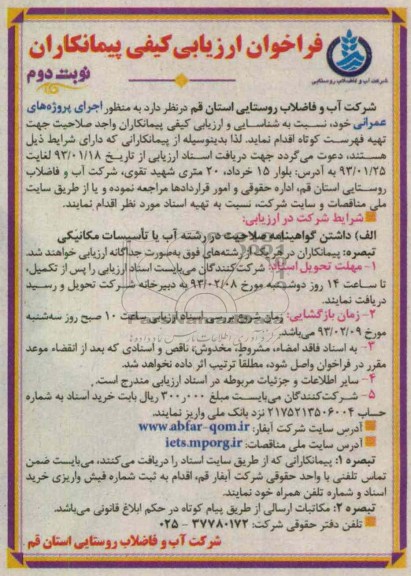 فراخوان ارزیابی کیفی پیمانکاران
نوبت دوم
شرکت آب و فاضلاب روستایی
شرکت آب و فاضلاب روستایی استان قم درنظر دارد به منظور اجرای پروژه‌های
عمرانی خود، نسبت به شناسایی و ارزیابی کیفی پیمانکاران واجد صلاحیت جهت
تهیه فهرست کوتاه اقدام نماید. لذا بدینوسیله از پیمانکارانی که دارای شرایط ذیل
هستند، دعوت می‌گردد جهت دریافت اسناد ارزیابی از تاریخ ۹۳/۰۱/۱۸ لغایت
۹۳/۰۱/۲۵ به آدرس: بلوار ۱۵ خرداد، ۲۰ متری شهید تقوی، شرکت آب و فاضلاب
روستایی استان قم، اداره حقوقی و امور قراردادها مراجعه نموده و یا از طریق سایت
ملی مناقصات و سایت شرکت، نسبت به تهیه اسناد مورد نظر اقدام نمایند.
شرایط شرکت در ارزیابی:
الف) داشتن گواهینامه صلاحیت در رشته آب یا تأسیسات مکانیکی
تبصره: پیمانکاران در هر یک از رشته‌های فوق به‌صورت جداگانه ارزیابی خواهند شد.
۱- مهلت تحویل اسناد: شرکت‌کنندگان می‌بایست اسناد ارزیابی را پس از تکمیل،
تا ساعت ۱۴ روز دوشنبه مورخ ۹۳/۰۲/۰۸ به دبیرخانه شرکت تحویل و رسید
دریافت نمایند.
۲- زمان بازگشایی: زمان شروع بررسی اسناد ارزیابی ساعت ۱۰ صبح روز سه‌شنبه
مورخ ۹۳/۰۲/۰۹ می‌باشد.
۳- به اسناد فاقد امضاء، مشروط، مخدوش، ناقص و اسنادی که بعد از انقضاء موعد
مقرر در فراخوان واصل شود، مطلقاً ترتیب اثر داده نخواهد شد.
۴- سایر اطلاعات و جزئیات مربوطه در اسناد ارزیابی مندرج است.
۵- شرکت‌کنندگان می‌بایست مبلغ ۳۰۰٫۰۰۰ ریال بابت خرید اسناد به شماره
حساب ۲۱۷۵۲۱۳۵۰۶۰۰۴ نزد بانک ملی واریز نمایند.
آدرس سایت شرکت آبفار: www.abfar-qom.ir
آدرس سایت ملی مناقصات: iets.mporg.ir
تبصره ۱: پیمانکارانی که از طریق سایت اسناد را دریافت می‌کنند، می‌بایست ضمن
تماس تلفنی با واحد حقوقی شرکت آبفار قم، اقدام به ثبت شماره فیش واریزی خرید
اسناد و شماره تلفن همراه خود نمایند.
تبصره ۲: مکاتبات ارسالی از طریق پیام کوتاه در حکم ابلاغ قانونی می‌باشد.
تلفن دفتر حقوقی شرکت: ۳۷۷۸۰۱۷۲ - ۰۲۵
شرکت آب و فاضلاب روستایی استان قم